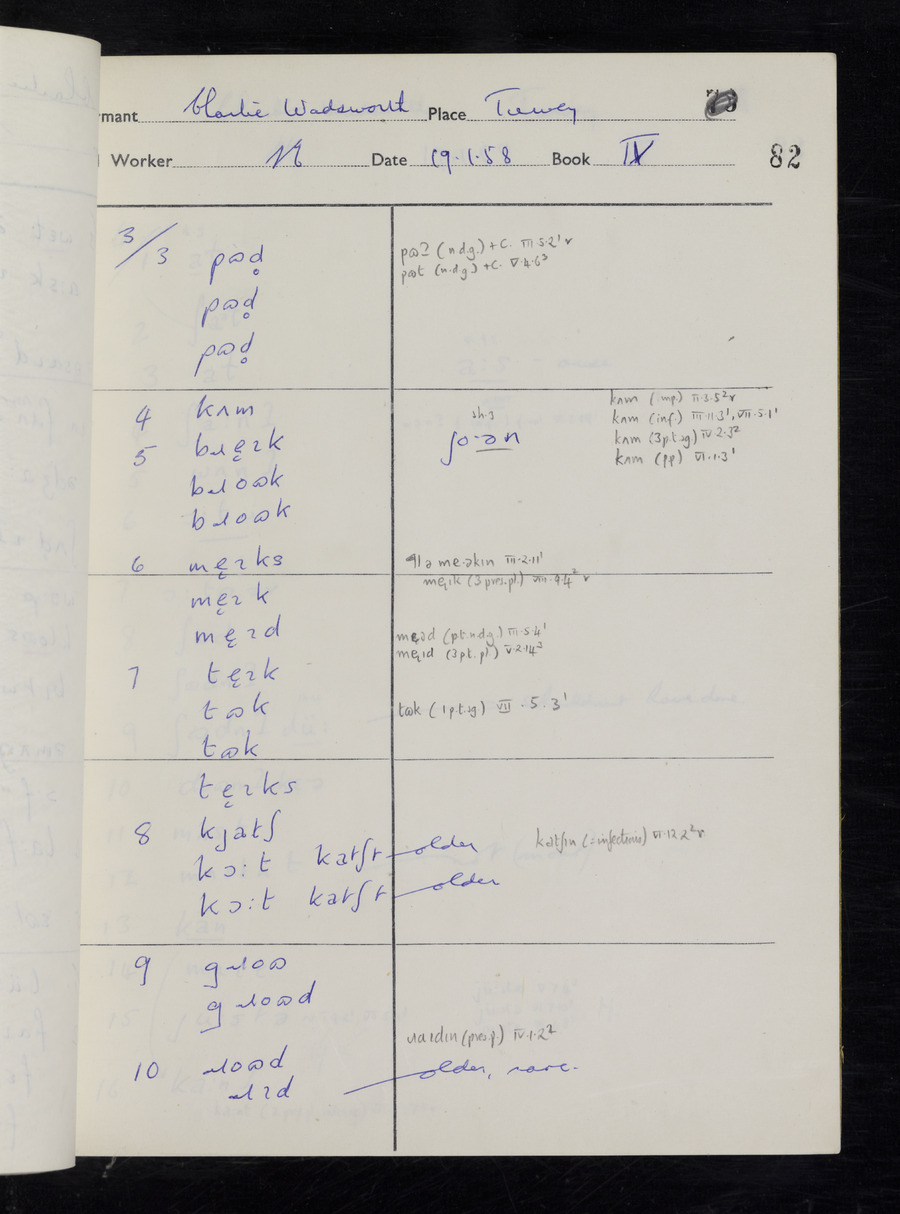 rmant Charlie Wadsworth Place Turvey
Worker Date 19.1.58 Book IV 82
3/3 pɷd̥
pɷd̥
pɷd̥
pɷʔ (n.d.g.) + C. III.5.2¹ v
pɷt (n.d.g) +C. V.4.6³
4 kʌm
5 bɹe̜ɪk
bɹoɷk
bɹoɷk
sh.3
ʃo·ən
kʌm (imp) II.3.5² v
kʌm (inf.) III.11.3¹, VII.5.1¹
kʌm (3p.t.sg) IV.2.3²
kʌm (pp) VI.1.3¹
6 me̜ɪks
me̜ɪk
me̜ɪd
me·əkɪn III.2.11¹
me̜ɪk (3 pres.pl.) VIII.9.4² v
me̜ɪd (pt.n.d.g.) III.5.4¹
me̜ɪd (3 pt. pl) V.2.14³
7 te̜ɪk
tɷk
tɷk
te̜ɪks
tɷk (1 p.t.sg) VII.5.3¹
8 kjatʃ
kɔ:t katʃt — older
kɔ:t katʃt — older
katʃɪn (=infectious) VI.12.2² v
9 gɹoɷ
gɹoɷd
10 ɹoɷd
ɹɪd — older, rare.
ɹaɪdɪn (pres.p.) IV.1.2²